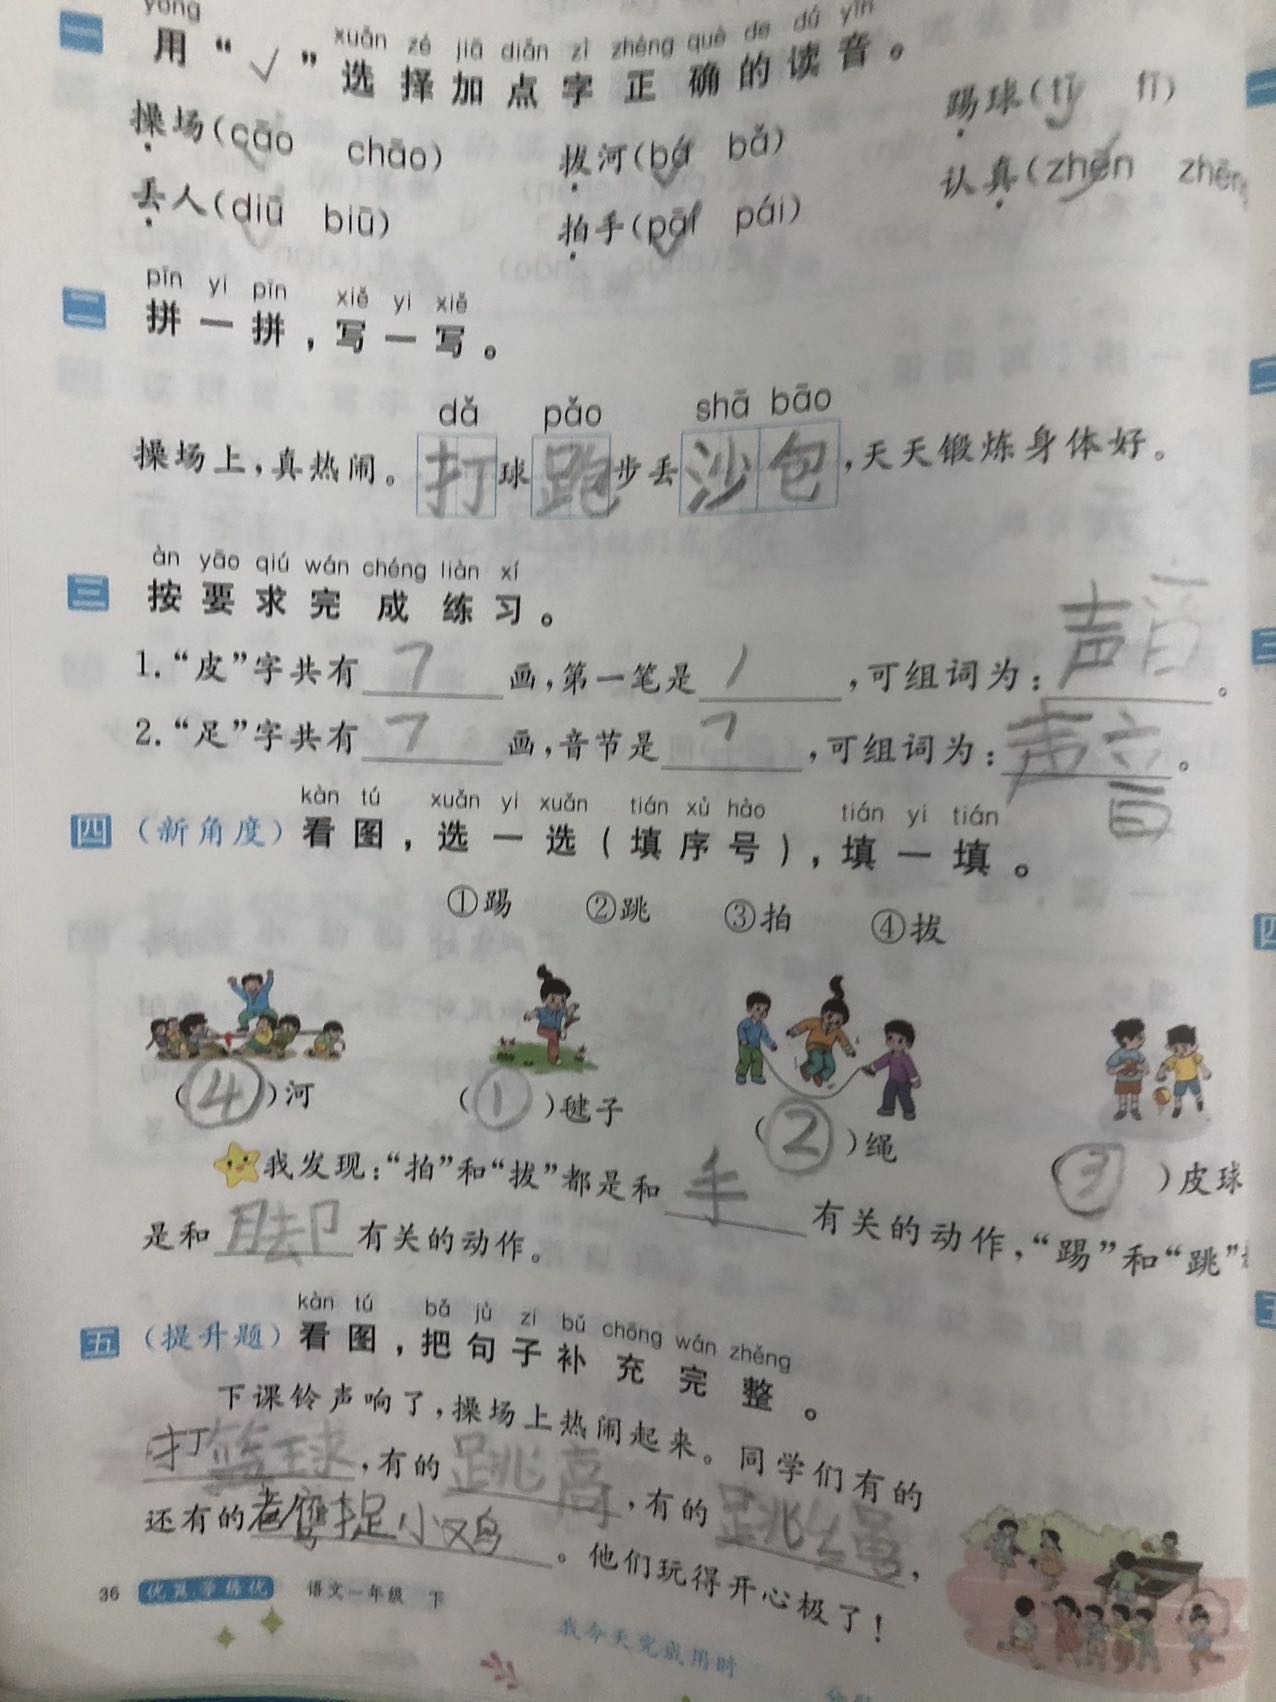 yòng xuǎn zé jiā diǎn zì zhèng què de dú yīn
一 用“√”选择加点字正确的读音。
操场(cāo chāo) 拔河(bá bǎ) 踢球(tī fī)
丢人(diū biū) 拍手(pāi pái) 认真(zhēn zhēng
pīn yi pīn xiě yi xiě
二 拼一拼，写一写。
dǎ pǎo shā bāo
操场上，真热闹。打球跑步丢沙包，天天锻炼身体好。
àn yāo qiú wán chéng liàn xí
三 按要求完成练习。
1.“皮”字共有7画，第一笔是丿，可组词为：声音。
2.“足”字共有7画，音节是7，可组词为：声音。
kàn tú xuǎn yi xuǎn tián xù hào tián yi tián
四 (新角度)看图，选一选(填序号)，填一填。
①踢 ②跳 ③拍 ④拔
(④)河 (①)毽子 (②)绳 (③)皮球
我发现：“拍”和“拔”都是和手有关的动作，“踢”和“跳”
是和脚有关的动作。
kàn tú bǎ jù zi bǔ chōng wán zhěng
五 (提升题)看图，把句子补充完整。
下课铃声响了，操场上热闹起来。同学们有的
打篮球，有的跳高，有的跳绳，
还有的老鹰捉小鸡。他们玩得开心极了！
36 优翼学练优 语文一年级 下
我今天完成用时